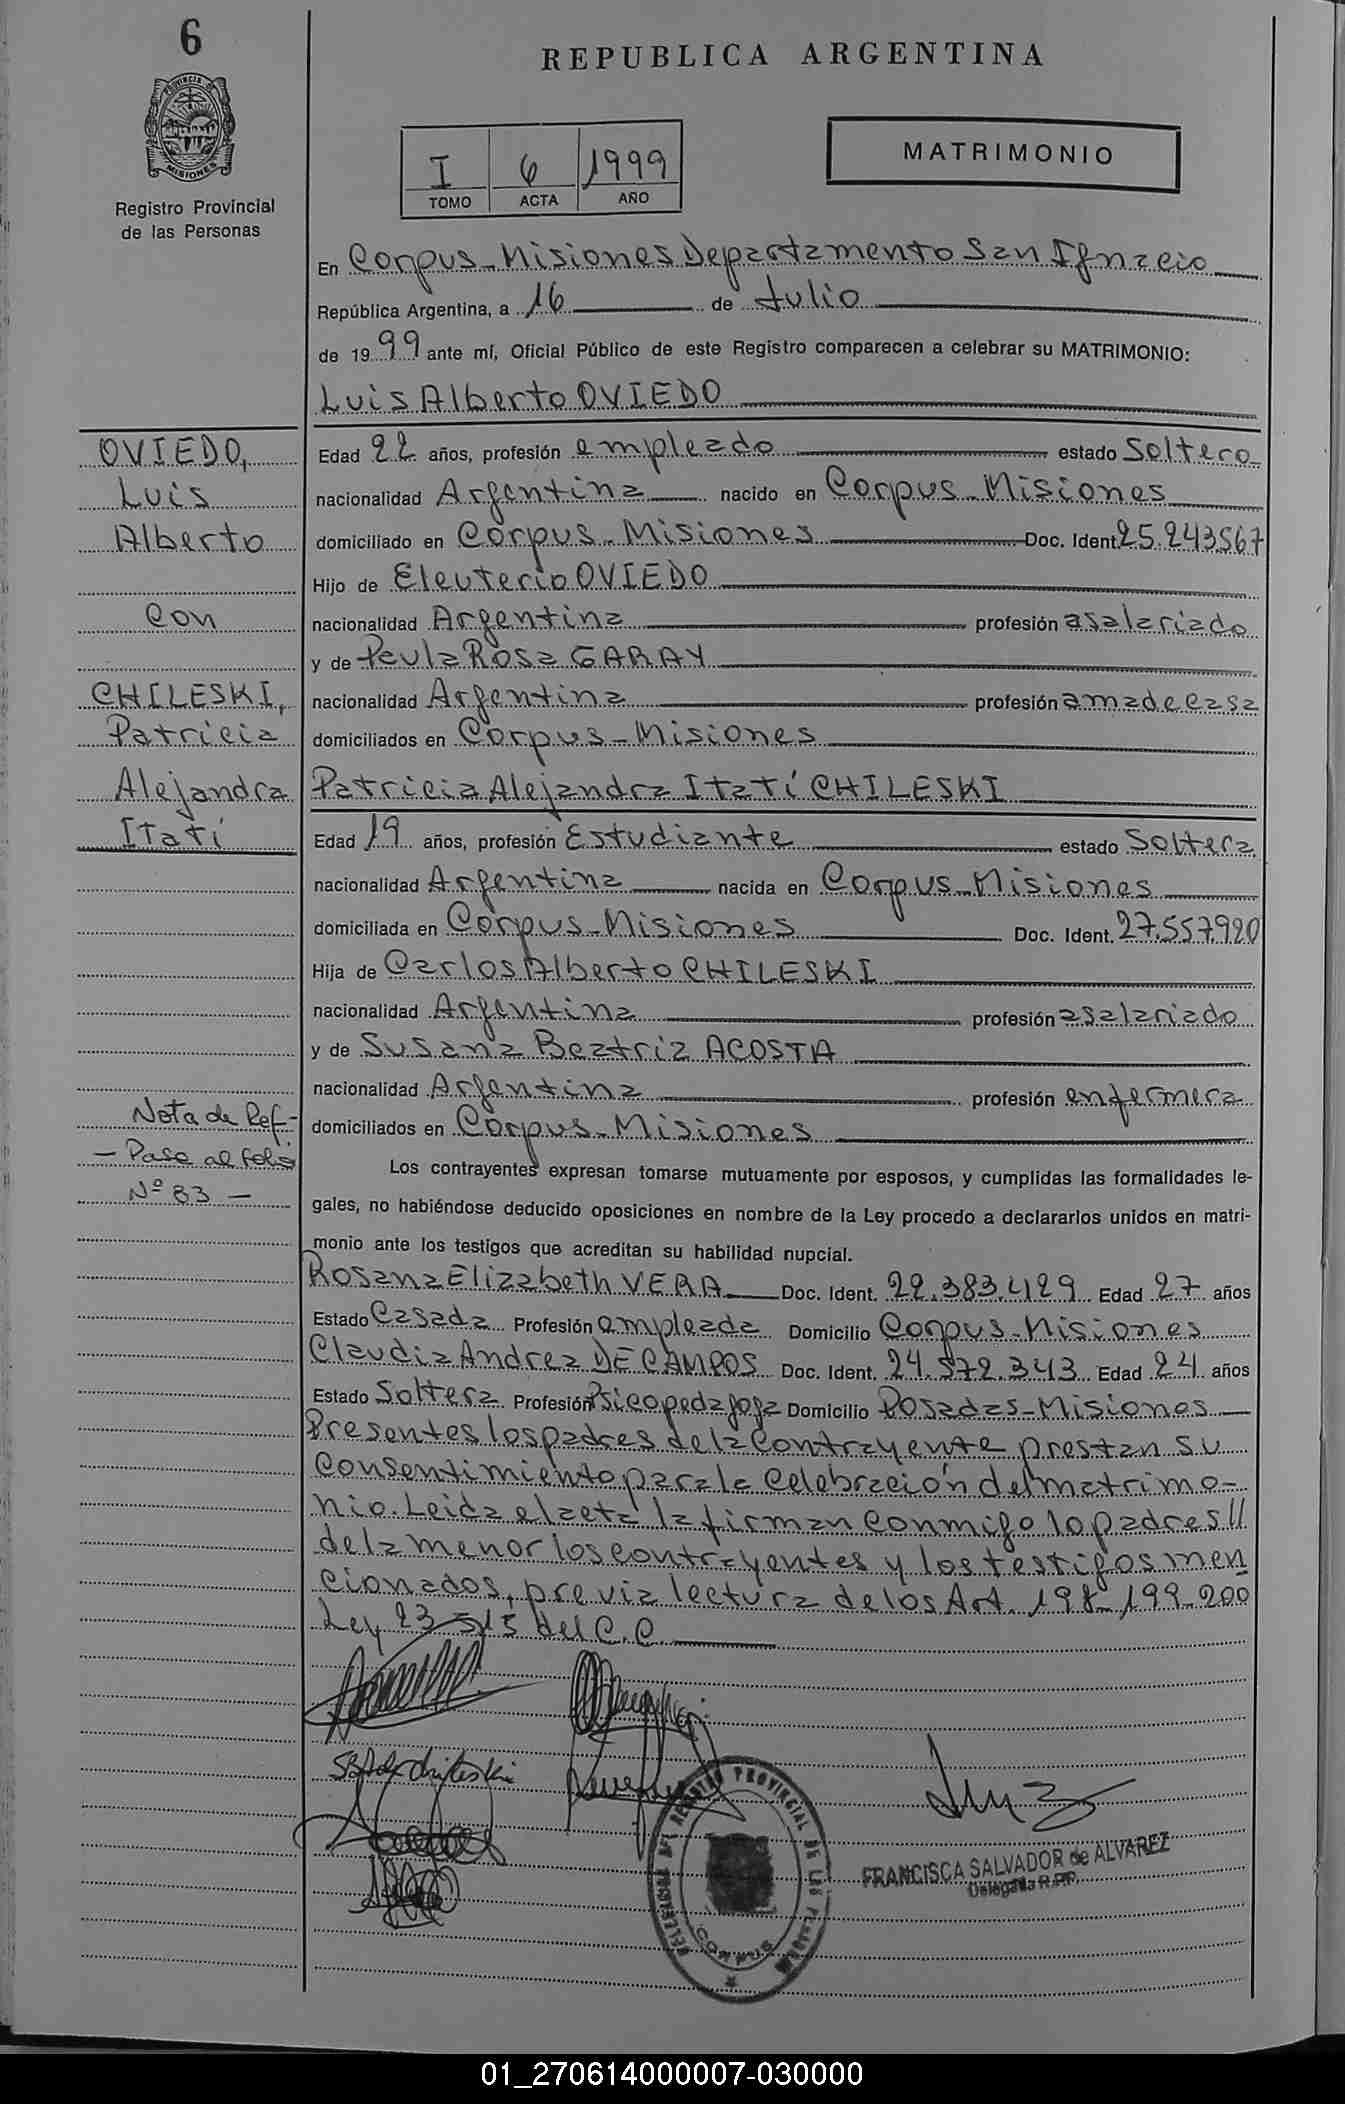 6
REPUBLICA ARGENTINA
PROVINCIA DE
MISIONES
Registro Provincial
de las Personas
I 6 1999
TOMO ACTA AÑO
MATRIMONIO
En Corpus-Misiones Departamento San Ignacio
República Argentina, a 16 de Julio
de 1999 ante mí, Oficial Público de este Registro comparecen a celebrar su MATRIMONIO:
Luis Alberto OVIEDO
OVIEDO,
Luis
Alberto
Con
CHILESKI,
Patricia
Alejandra
Itatí
Edad 22 años, profesión empleado estado Soltero
nacionalidad Argentina nacido en Corpus-Misiones
domiciliado en Corpus-Misiones Doc. Ident. 25.243.567
Hijo de Eleuterio OVIEDO
nacionalidad Argentina profesión asalariado
y de Paula Rosa GARAY
nacionalidad Argentina profesión ama de casa
domiciliados en Corpus-Misiones
Patricia Alejandra Itatí CHILESKI
Edad 19 años, profesión Estudiante estado Soltera
nacionalidad Argentina nacida en Corpus-Misiones
domiciliada en Corpus-Misiones Doc. Ident. 27.557.920
Hija de Carlos Alberto CHILESKI
nacionalidad Argentina profesión asalariado
y de Susana Beatriz ACOSTA
nacionalidad Argentina profesión enfermera
domiciliados en Corpus-Misiones
Nota de Ref-
- Pase al folio
Nº 83 -
Los contrayentes expresan tomarse mutuamente por esposos, y cumplidas las formalidades le-
gales, no habiéndose deducido oposiciones en nombre de la Ley procedo a declararlos unidos en matri-
monio ante los testigos que acreditan su habilidad nupcial.
Rosana Elizabeth VERA Doc. Ident. 22.383.429 Edad 27 años
Estado Casada Profesión empleada Domicilio Corpus-Misiones
Claudia Andrea DE CAMPOS Doc. Ident. 24.572.343 Edad 24 años
Estado Soltera Profesión Psicopedagoga Domicilio Posadas-Misiones
Presentes los padres de la Contrayente prestan su
Consentimiento para la Celebración del matrimo-
nio. Leida el acta la firman Conmigo lo padres //
de la menor los contrayentes y los testigos men
cionados, previa lectura de los Art. 198-199-200
Ley 23515 del C.C.
Chileski
DELEGACION DEL REGISTRO PROVINCIAL DE LAS PERSONAS
CORPUS
FRANCISCA SALVADOR de ALVAREZ
Delegada R.P.P.
01_270614000007-030000